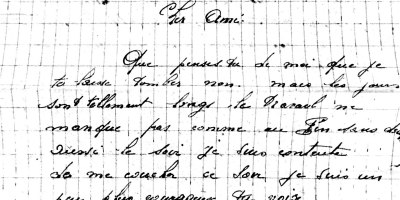 Cher Ami.
Que penses tu de moi que je
te laisse tomber non. mais les jours
sont tellement longs le travail ne
manque pas comme au
Aussi le soir je suis contente
de me coucher ce soir je suis un
peu plus courageux tu vois